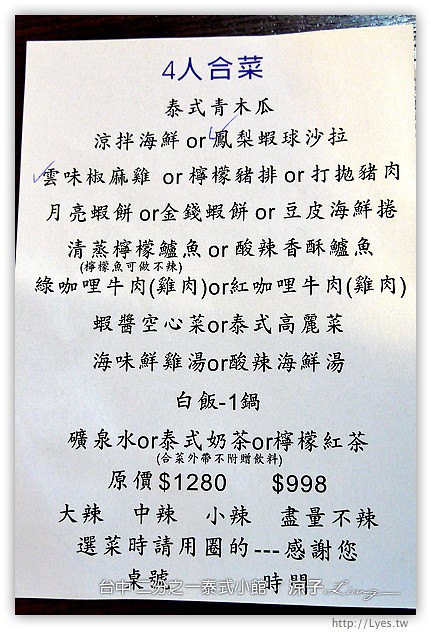 4人合菜
泰式青木瓜
涼拌海鮮or鳳梨蝦球沙拉
雲味椒麻雞 or檸檬豬排or打拋豬肉
月亮蝦餅or金錢蝦餅or豆皮海鮮捲
清蒸檸檬鱸魚or酸辣香酥鱸魚
(檸檬魚可做不辣)
綠咖哩牛肉(雞肉)or紅咖哩牛肉(雞肉)
蝦醬空心菜or泰式高麗菜
海味鮮雞湯or酸辣海鮮湯
白飯-1鍋
礦泉水or泰式奶茶or檸檬紅茶
(合菜外帶不附贈飲料)
原價$1280 $998
大辣 中辣 小辣 盡量不辣
選菜時請用圈的---感謝您
桌號 時間
台中 二分之一泰式小館 涼子 Liang
http://Lyes.tw